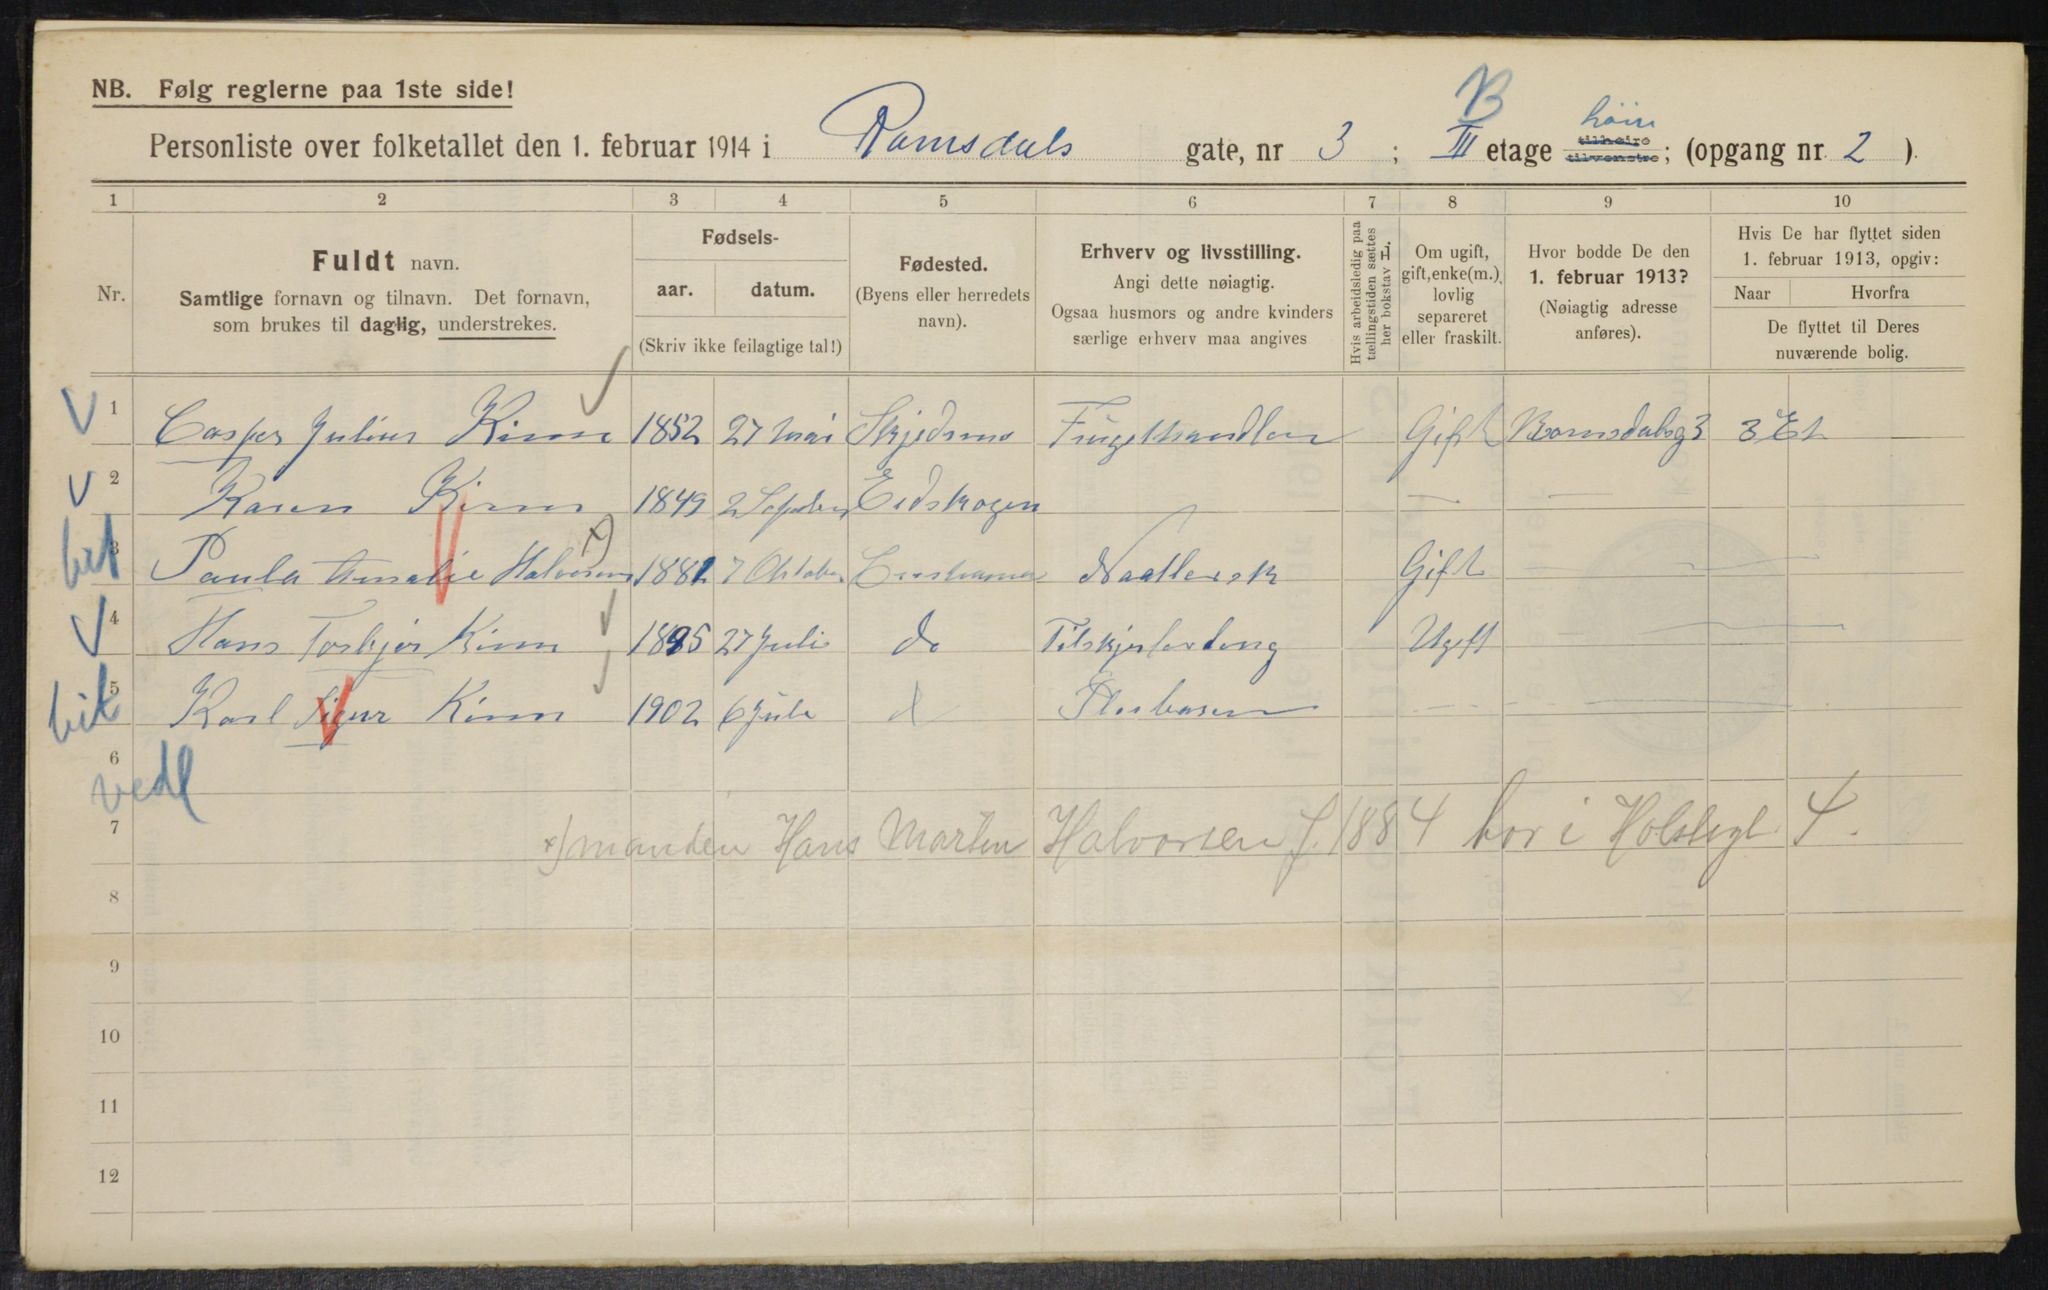 NB. Følg reglerne paa 1ste side!
B
Personliste over folketallet den 1. februar 1914 i Romsdals gate, nr 3 ; III etage tilhøire tilvenstre høire ; (opgang nr. 2 ).
1 2 3 4 5 6 7 8 9 10
Nr.
Fuldt navn.
Samtlige fornavn og tilnavn. Det fornavn,
som brukes til daglig, understrekes.
Fødsels-
aar. datum.
(Skriv ikke feilagtige tal!)
Fødested.
(Byens eller herredets
navn).
Erhverv og livsstilling.
Angi dette nøiagtig.
Ogsaa husmors og andre kvinders
særlige erhverv maa angives
Hvis arbeidsledig paa
tællingstiden sættes
her bokstav l.
Om ugift,
gift, enke(m.),
lovlig
separeret
eller fraskilt.
Hvor bodde De den
1. februar 1913?
(Nøiagtig adresse
anføres).
Hvis De har flyttet siden
1. februar 1913, opgiv:
Naar Hvorfra
De flyttet til Deres
nuværende bolig.
1 Casper Julius Kinn 1852 27 Mai Skjedsmo Gift Romsdalsg 3 3 Et
2 Karen Kinn 1849 2 Eidskogen —
bet 3 Paula Amalie Halvorsen x) 1881 7 Oktober Gift
4 Hans Kinn 1895 27 Juli do Ugift
5 Karl Kinn 1902 6 Juli d
6
vedl
7 x) manden Hans Martin Halvorsen f. 1884 bor i 4.
8
9
10
11
12